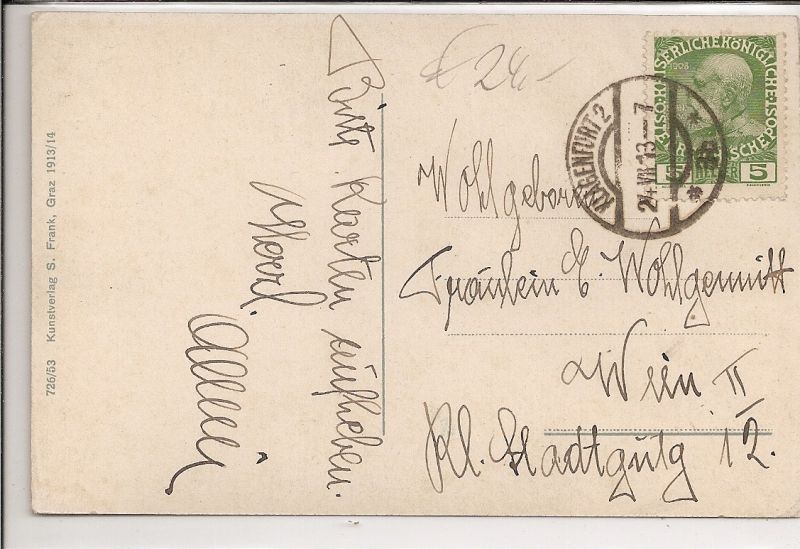 726/53 Kunstverlag S. Frank, Graz 1913/14
Bitte Karten aufheben.
€ 24,-
KAISERLICHEKÖNIGLICHE
1908
5 5
KLAGENFURT 2
24 VII 13 - 7
Wohlgeboren
Fräulein E. Wohlgemutt
Wien II
Kl. Stadtgutg 12.